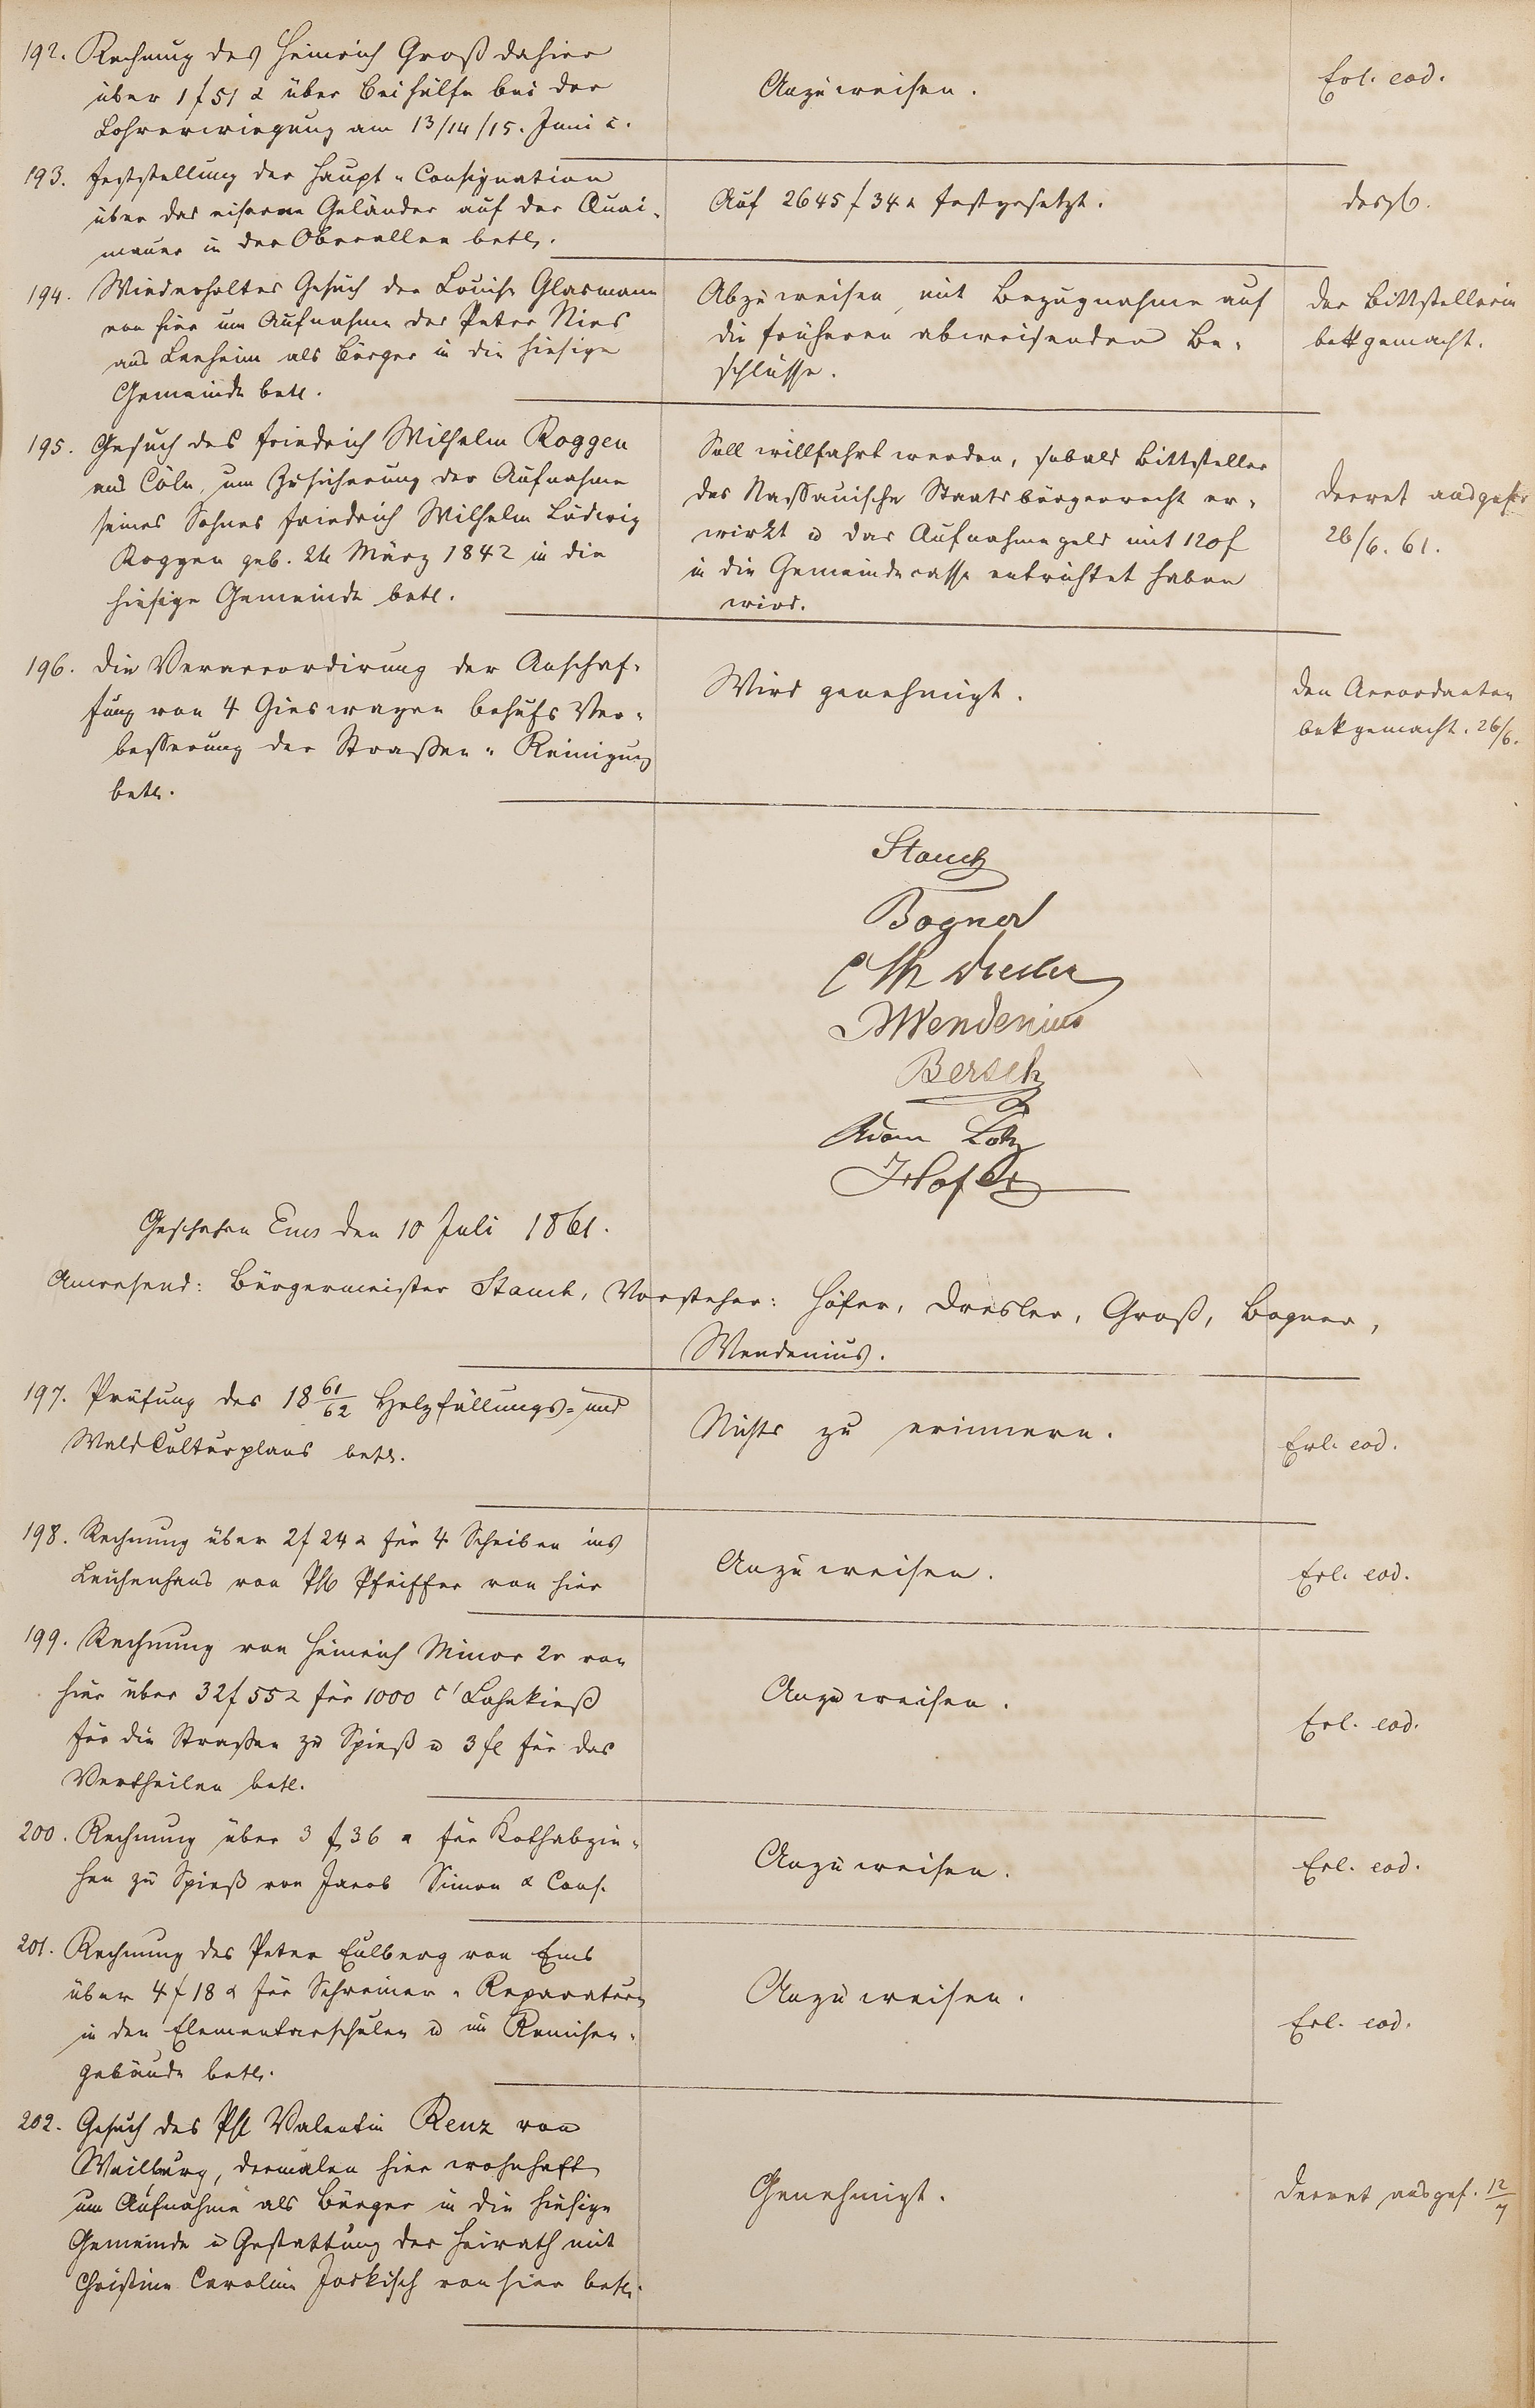 192. Rechnung des Heinrich Groß dahier
über 1 f 51 x über Beihülfe bei der
Lohrerwiegung am 13/14/15. Juni c.
Anzuweisen.
Erl. eod.
193. Feststellung der Haupt-Consignation
über das eiserne Geländer auf der Quai-
mauer in der Oberallee betr.
Auf 2645 f 34 x festgesetzt.
desgl.
194. Wiederholtes Gesuch der Louise Glasmann
von hier um Aufnahme des Peter Nies
aus Leeheim als Bürger in die hiesige
Gemeinde betr.
Abzuweisen, mit Bezugnahme auf
die früheren abweisenden Be-
schlüsse.
Der Bittstellerin
bektgemacht.
195. Gesuch des Friedrich Wilhelm Roggen
aus Cöln, um Zusicherung der Aufnahme
seines Sohnes Friedrich Wilhelm Ludwig
Roggen geb. 24 März 1842 in die
hiesige Gemeinde betr.
Soll willfahrt werden, sobald Bittsteller
das Nassauische Staatsbürgerrecht er-
wirkt u das Aufnahmegeld mit 120 f
in die Gemeindecasse entrichtet haben
wird.
Decret ausgefer
26/6. 61.
196. Die Veraccordirung der Anschaf-
fung von 4 Gieswagen behufs Ver-
besserung der Straßen-Reinigung
betr.
Wird genehmigt.
Den Accordanten
bektgemacht. 26/6.
Stauch
Bogner
C Th Dresler
Wendenius
Bersch
Adam Lotz
J Höfer
Geschehen Ems den 10 Juli 1861.
Anwesend: Bürgermeister Stauch, Vorsteher: Höfer, Dresler, Groß, Bogner,
Wendenius.
197. Prüfung des 18 61/62 Holzfällungs- und
WaldCulturplans betr.
Nichts zu erinnern.
Erl. eod.
198. Rechnung über 2 f 24 x für 4 Scheiben ins
Leichenhaus von Phl Pfeiffer von hier
Anzuweisen.
Erl. eod.
199. Rechnung von Heinrich Minor 2r von
hier über 32 f 55 x für 1000 c' Lahnkieß
für die Straßen zu Spieß u 3 fl für das
Vertheilen betr.
Anzuweisen.
Erl. eod.
200. Rechnung über 3 f 36 x für Kothabzie-
hen zu Spieß von Jacob Simon & Cons.
Anzuweisen.
Erl. eod.
201. Rechnung des Peter Eulberg von Ems
über 4 f 18 x für Schreiner-Reparaturen
in den Elementarschulen u im Remisen-
gebäude betr.
Anzuweisen.
Erl. eod.
202. Gesuch des Phl Valentin Renz von
Weilburg, dermalen hier wohnhaft
um Aufnahme als Bürger in die hiesige
Gemeinde u Gestattung der Heirath mit
Christine Caroline Jockisch von hier betr.
Genehmigt.
Decret ausgef. 12/7